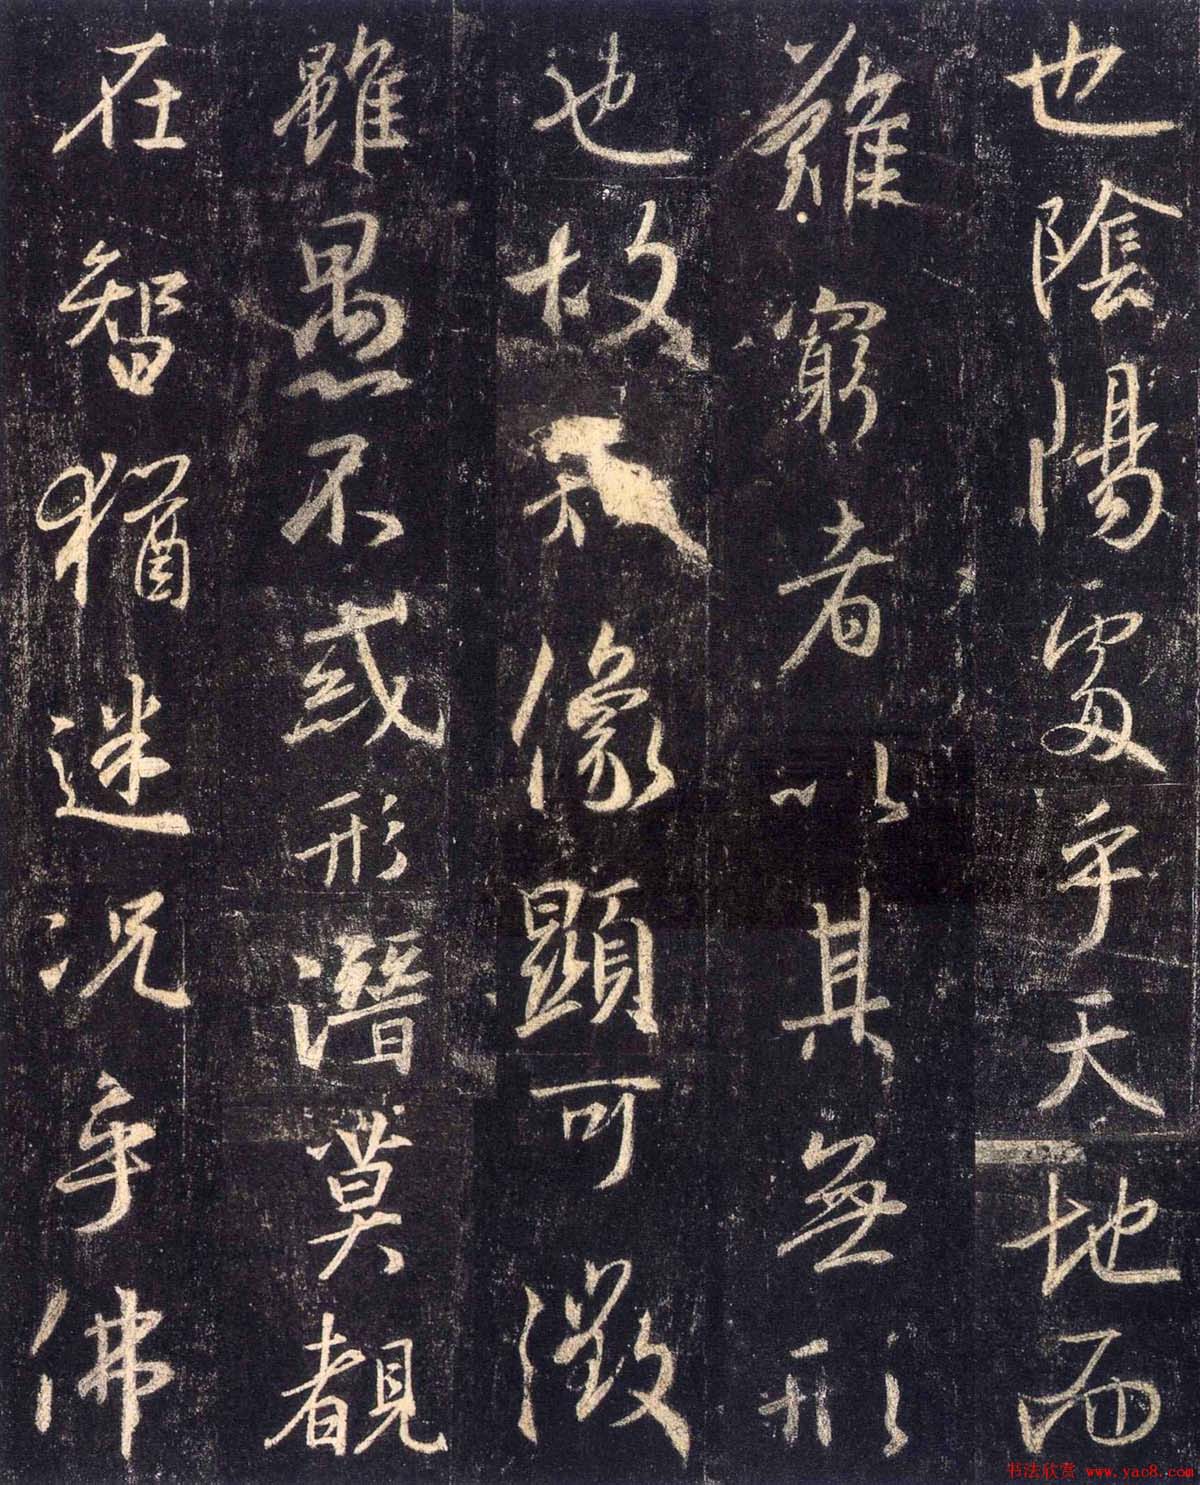 也陰陽處乎天地而
難窮者以其無形
也故知像顯可徵
雖愚不惑形潛莫覩
在智猶迷況乎佛
书法欣赏 www.yac8.com